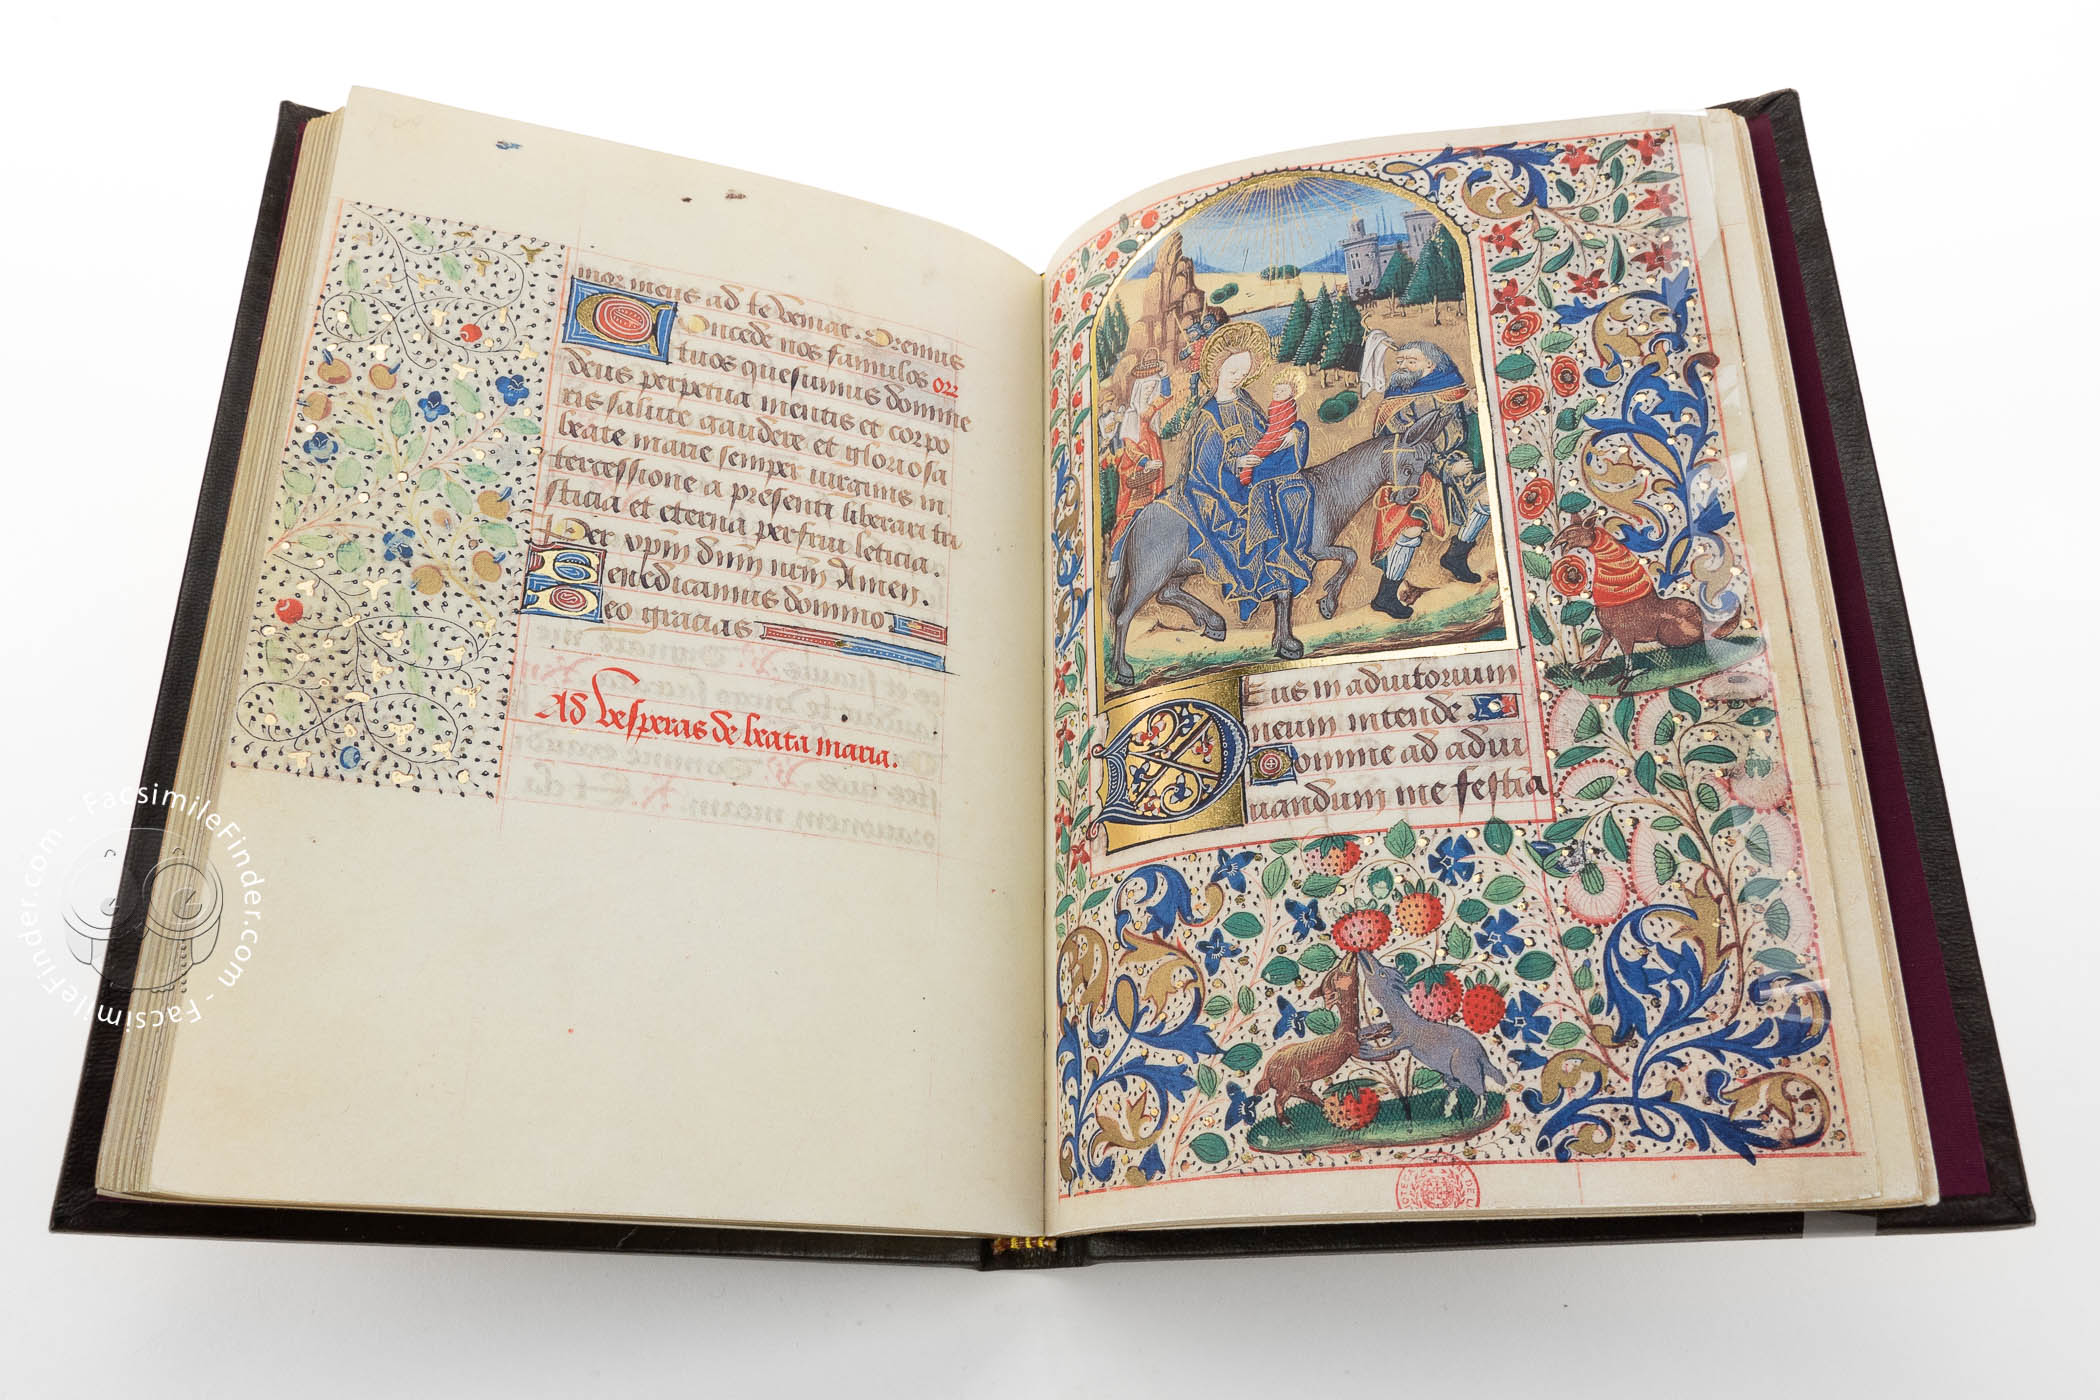 mor meus ad te veniat. Oremus
Concede nos famulos orr
tuos quesumus domine
deus perpetua mentis et corpo
ris salute gaudere et gloriosa
beate marie semper virginis in
tercessione a presenti liberari tri
sticia et eterna perfrui leticia.
Per xpm dnm nrm Amen.
Benedicamus domino
Deo gracias
Ad vesperas de beata maria.
Deus in adiutorium
meum intende
Domine ad adiu
uandum me festina
FacsimileFinder.com - FacsimileFinder.com -